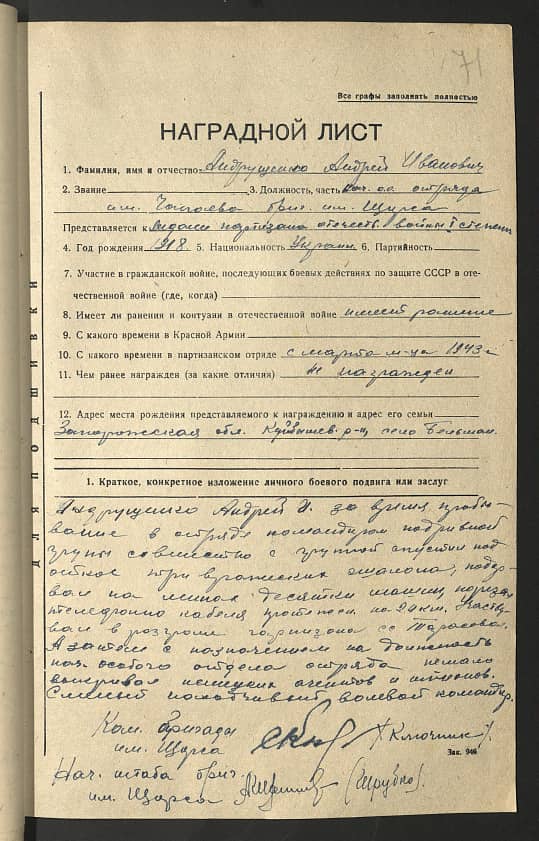 71
Все графы заполнять полностью
НАГРАДНОЙ ЛИСТ
1. Фамилия, имя и отчество Андрущенко Андрей Иванович
2. Звание 3. Должность, часть Нач. о.о. отряда
им. Чапаева бриг. им. Щорса
Представляется к медали партизана отечеств. войны I степени
4. Год рождения 1918. 5. Национальность Украин 6. Партийность
7. Участие в гражданской войне, последующих боевых действиях по защите СССР в оте-
чественной войне (где, когда)
8. Имеет ли ранения и контузии в отечественной войне имеет ранение
9. С какого времени в Красной Армии
10. С какого времени в партизанском отряде с марта м-ца 1943 г
11. Чем ранее награжден (за какие отличия) не награжден
12. Адрес места рождения представляемого к награждению и адрес его семьи
Запорожская обл. Куйбышев. р-н, село Бельман.
1. Краткое, конкретное изложение личного боевого подвига или заслуг
Андрущенко Андрей И. за время пребы-
вание в отряде командиром подрывной
группы совместно с группой спустил под
откос три вражеских эшелона, подор-
вал на минах десятки машин, порезал
телефонно кабеля протяжен на 24 км. Участву-
вал в розгроме гарнизона
А затем с назначением на должность
нач. особого отдела отряда немало
выкривал немецких агентов и шпионов.
Смелый находчивый волевой командир.
Ком. бригады
им. Щорса (Ключник).
Зак. 946
Нач. штаба бриг.
им. Щорса (Шрубко).
ДЛЯ ПОДШИВКИ